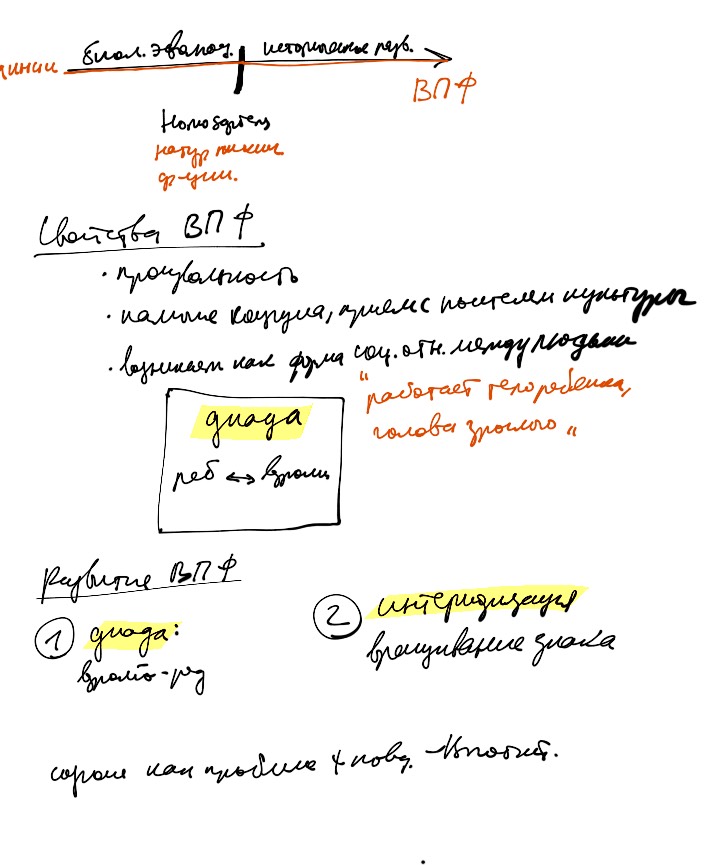 линии биол. эволюц. | историческое разв.
ВПФ
Homo sapiens
натур псих
ф-ции.
Свойства ВПФ
· произвольность
· наличие социума, прием с носителем культуры
· возникает как форма соц. отн. между людьми
"работает тело ребенка,
голова взрослого"
диада
реб ↔ взросл
Развитие ВПФ
① диада:
взросл-реб
② интериоризация
вращивание знака
как